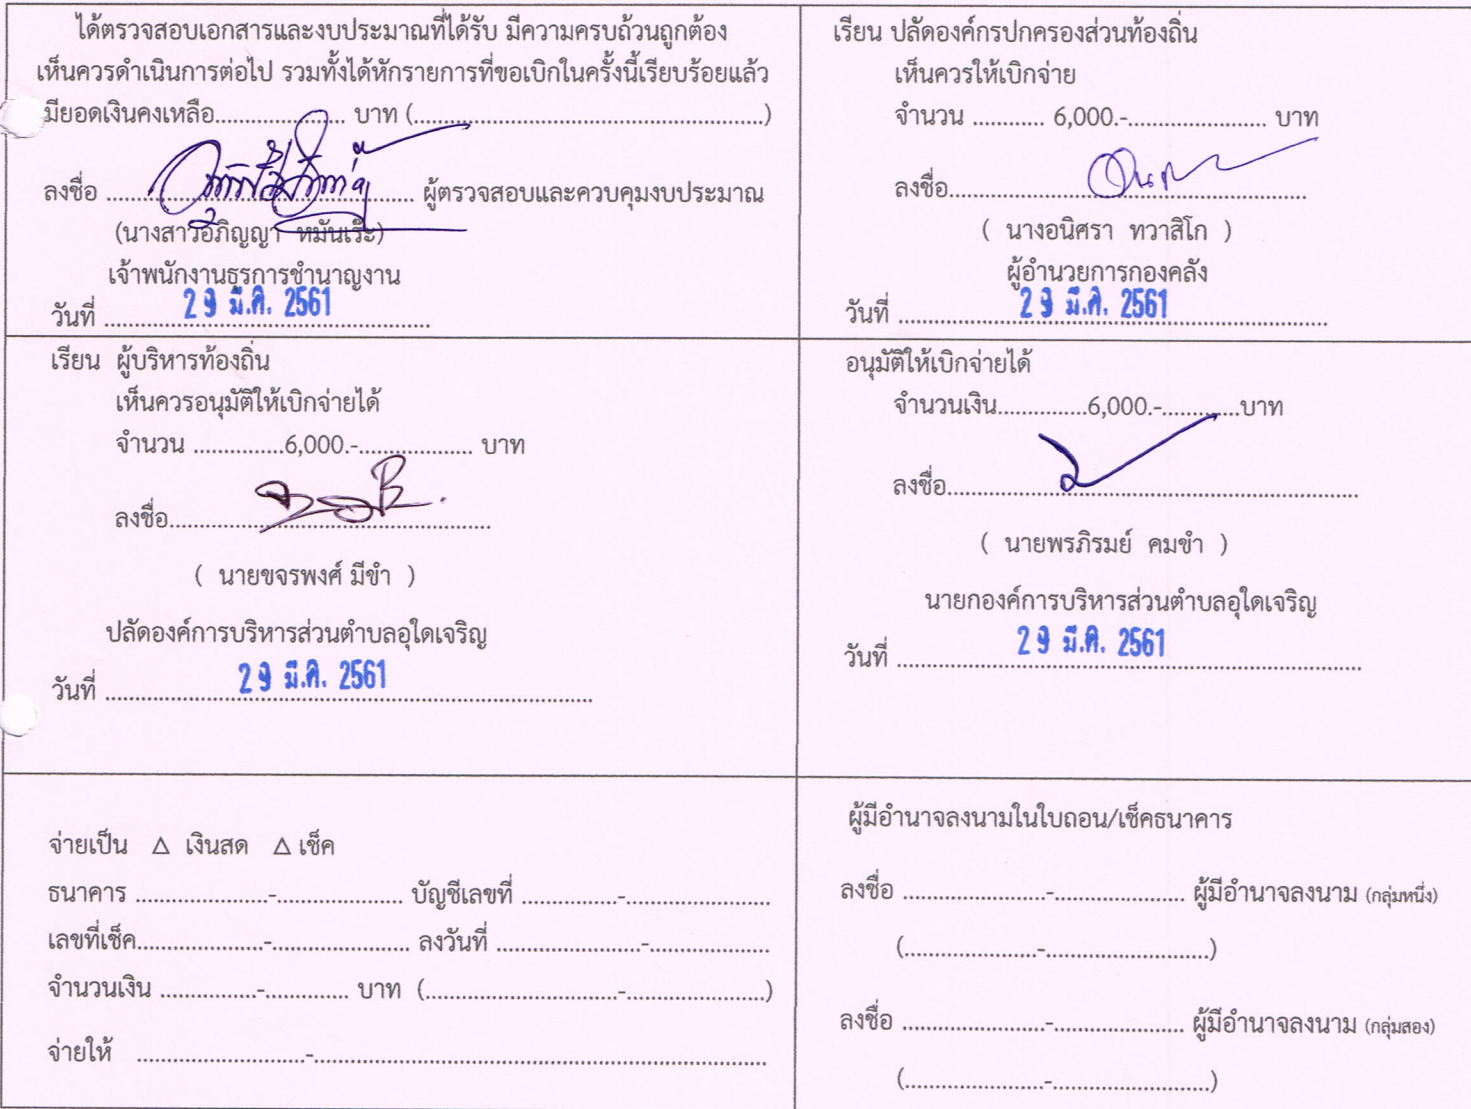 ได้ตรวจสอบเอกสารและงบประมาณที่ได้รับ มีความครบถ้วนถูกต้อง
เห็นควรดำเนินการต่อไป รวมทั้งได้หักรายการที่ขอเบิกในครั้งนี้เรียบร้อยแล้ว
มียอดเงินคงเหลือ..................... บาท (.........................................................)
ลงชื่อ .................................................. ผู้ตรวจสอบและควบคุมงบประมาณ
(นางสาวอภิญญา หมันเร๊ะ)
เจ้าพนักงานธุรการชำนาญงาน
วันที่ ..................................................... 29 มี.ค. 2561
เรียน ปลัดองค์กรปกครองส่วนท้องถิ่น
เห็นควรให้เบิกจ่าย
จำนวน ............ 6,000.-....................... บาท
ลงชื่อ...........................................................
( นางอนิศรา ทวาสิโก )
ผู้อำนวยการกองคลัง
วันที่ ...................................................................... 29 มี.ค. 2561
เรียน ผู้บริหารท้องถิ่น
เห็นควรอนุมัติให้เบิกจ่ายได้
จำนวน ...............6,000.-................... บาท
ลงชื่อ.....................................................
( นายขจรพงศ์ มีขำ )
ปลัดองค์การบริหารส่วนตำบลอุใดเจริญ
วันที่ ................................................................................ 29 มี.ค. 2561
อนุมัติให้เบิกจ่ายได้
จำนวนเงิน...............6,000.-.............บาท
ลงชื่อ....................................................................
( นายพรภิรมย์ คมขำ )
นายกองค์การบริหารส่วนตำบลอุใดเจริญ
วันที่ ............................................................................. 29 มี.ค. 2561
จ่ายเป็น Δ เงินสด Δ เช็ค
ธนาคาร ......................-..................... บัญชีเลขที่ ................-........................
เลขที่เช็ค.....................-....................... ลงวันที่ ........................-....................
จำนวนเงิน ................-.............. บาท (................................-.......................)
จ่ายให้ ............................-...........................................................................
ผู้มีอำนาจลงนามในใบถอน/เช็คธนาคาร
ลงชื่อ ........................-..................... ผู้มีอำนาจลงนาม (กลุ่มหนึ่ง)
(.......................-...........................)
ลงชื่อ ........................-..................... ผู้มีอำนาจลงนาม (กลุ่มสอง)
(.......................-...........................)